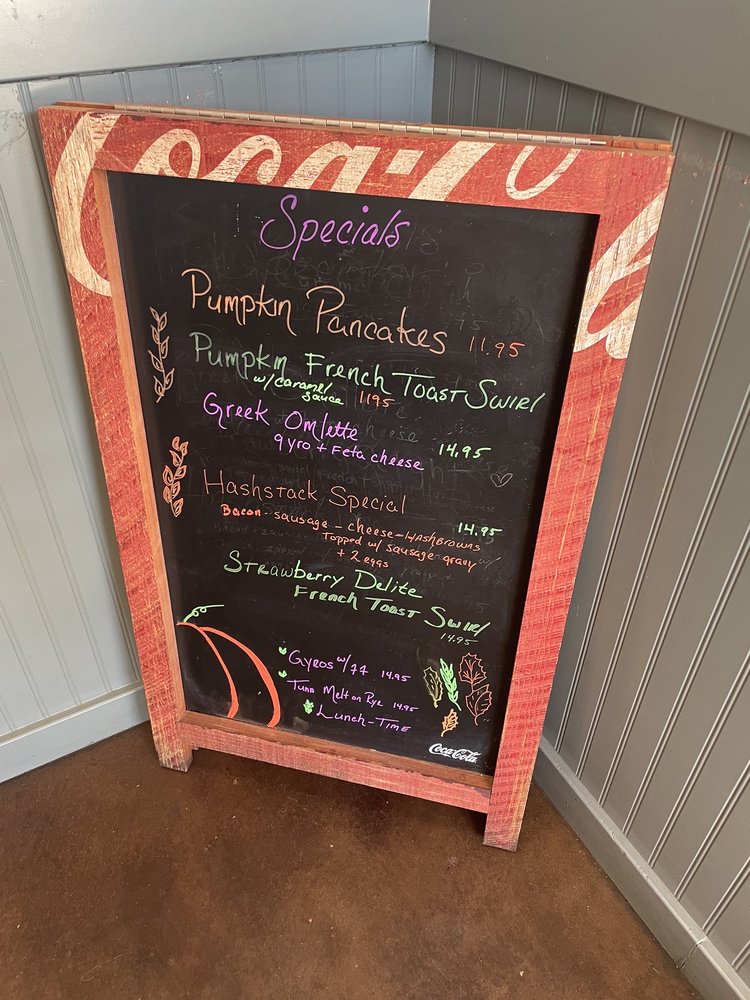 Coca-Cola
Specials
Pumpkin Pancakes 11.95
Pumpkin French Toast Swirl
w/caramel
sauce 1195
Greek Omlette 14.95
gyro + Feta cheese
Hashstack Special 14.95
Bacon-sausage-cheese-Hashbrowns
Topped w/ sausage gravy
+ 2 eggs
Strawberry Delite
French Toast Swirl
14.95
Gyros w/FF 14.95
Tuna Melt on Rye 14.95
Lunch-Time
Coca-Cola